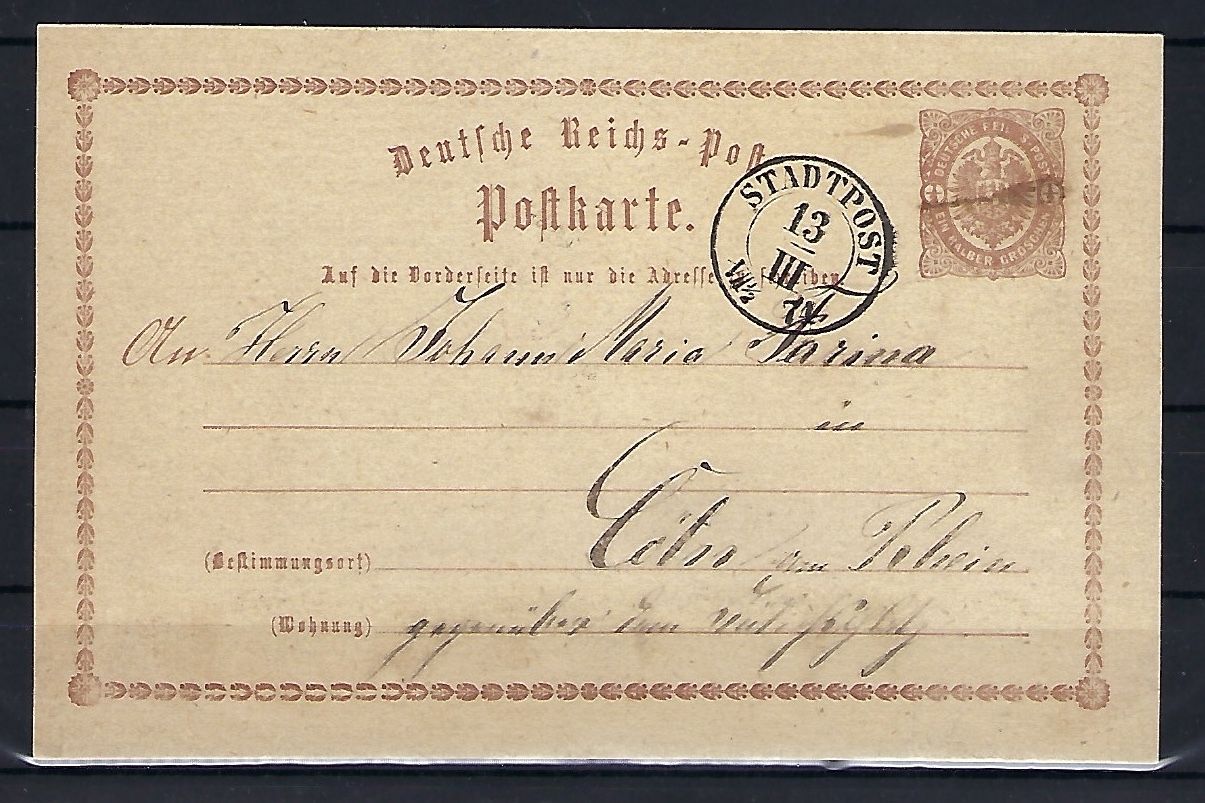 Deutsche Reichs-Post
Postkarte.
Auf die Vorderseite ist nur die Adresse
DEUTSCHE REICHS POST
EIN HALBER GROSCHEN
STADTPOST
13
III
74
An Herrn Johann Maria Farina
in
Cöln am Rhein
(Bestimmungsort)
(Wohnung) gegenüber dem